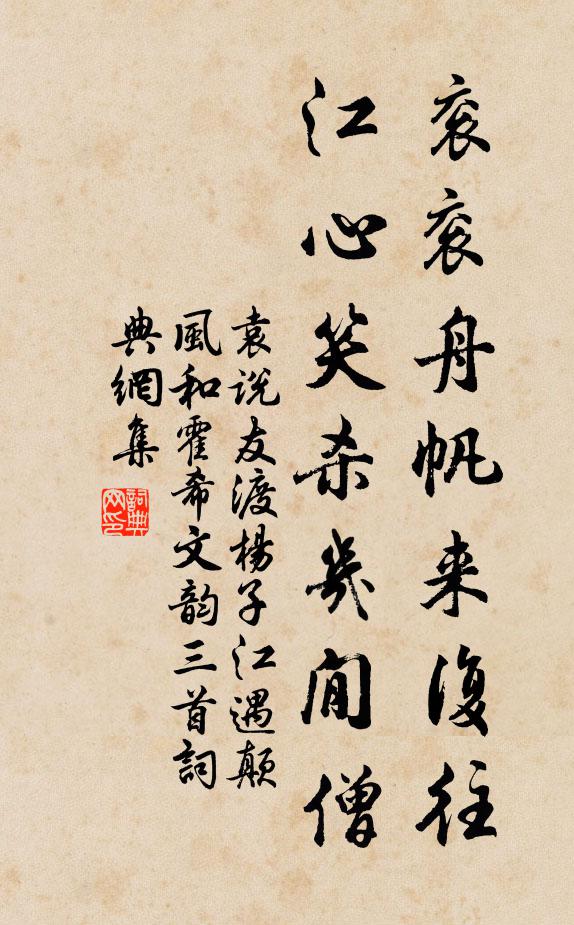 衮衮舟帆来復往
江心笑杀几閒僧
袁说友渡楊子江遇颠
風和霍希文韵三首詞
典網集
詞典
网印